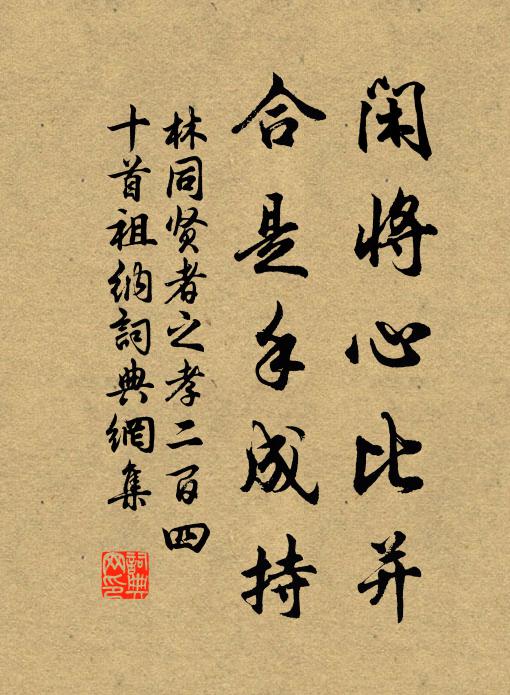 闲将心比并
合是手成持
林同贤者之孝二百四
十首祖纳詞典網集
詞典網印